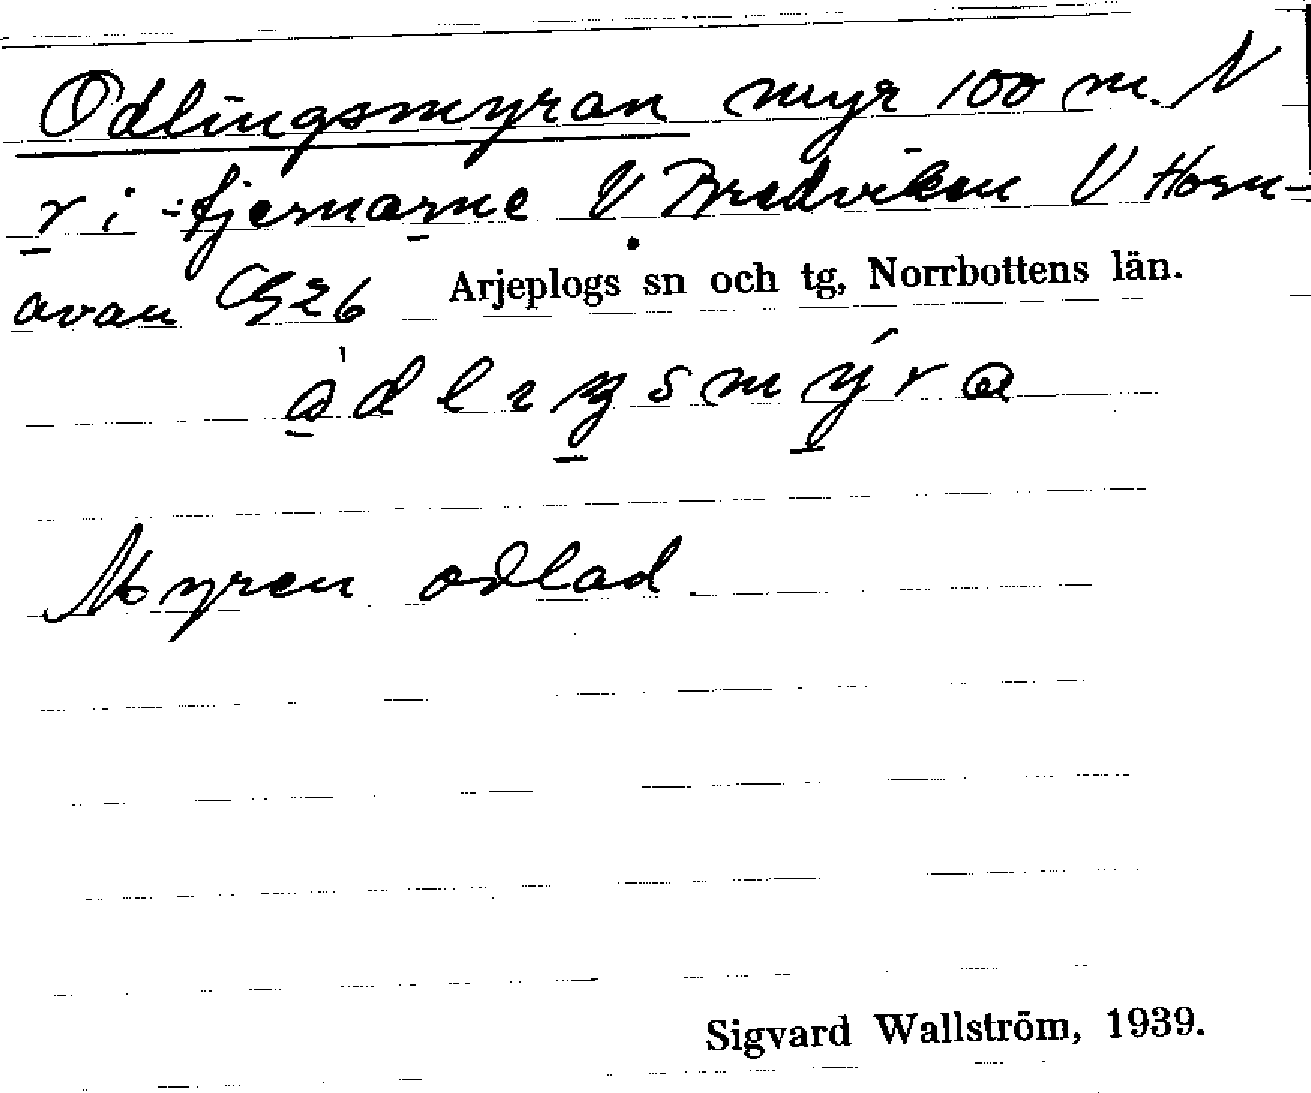 Odlingsmyran myr 100 m. N
r i -tjernarne V Bredviken V Horn-
avan C926 Arjeplogs sn och tg, Norrbottens län.
Myren odlad
Sigvard Wallström, 1939.